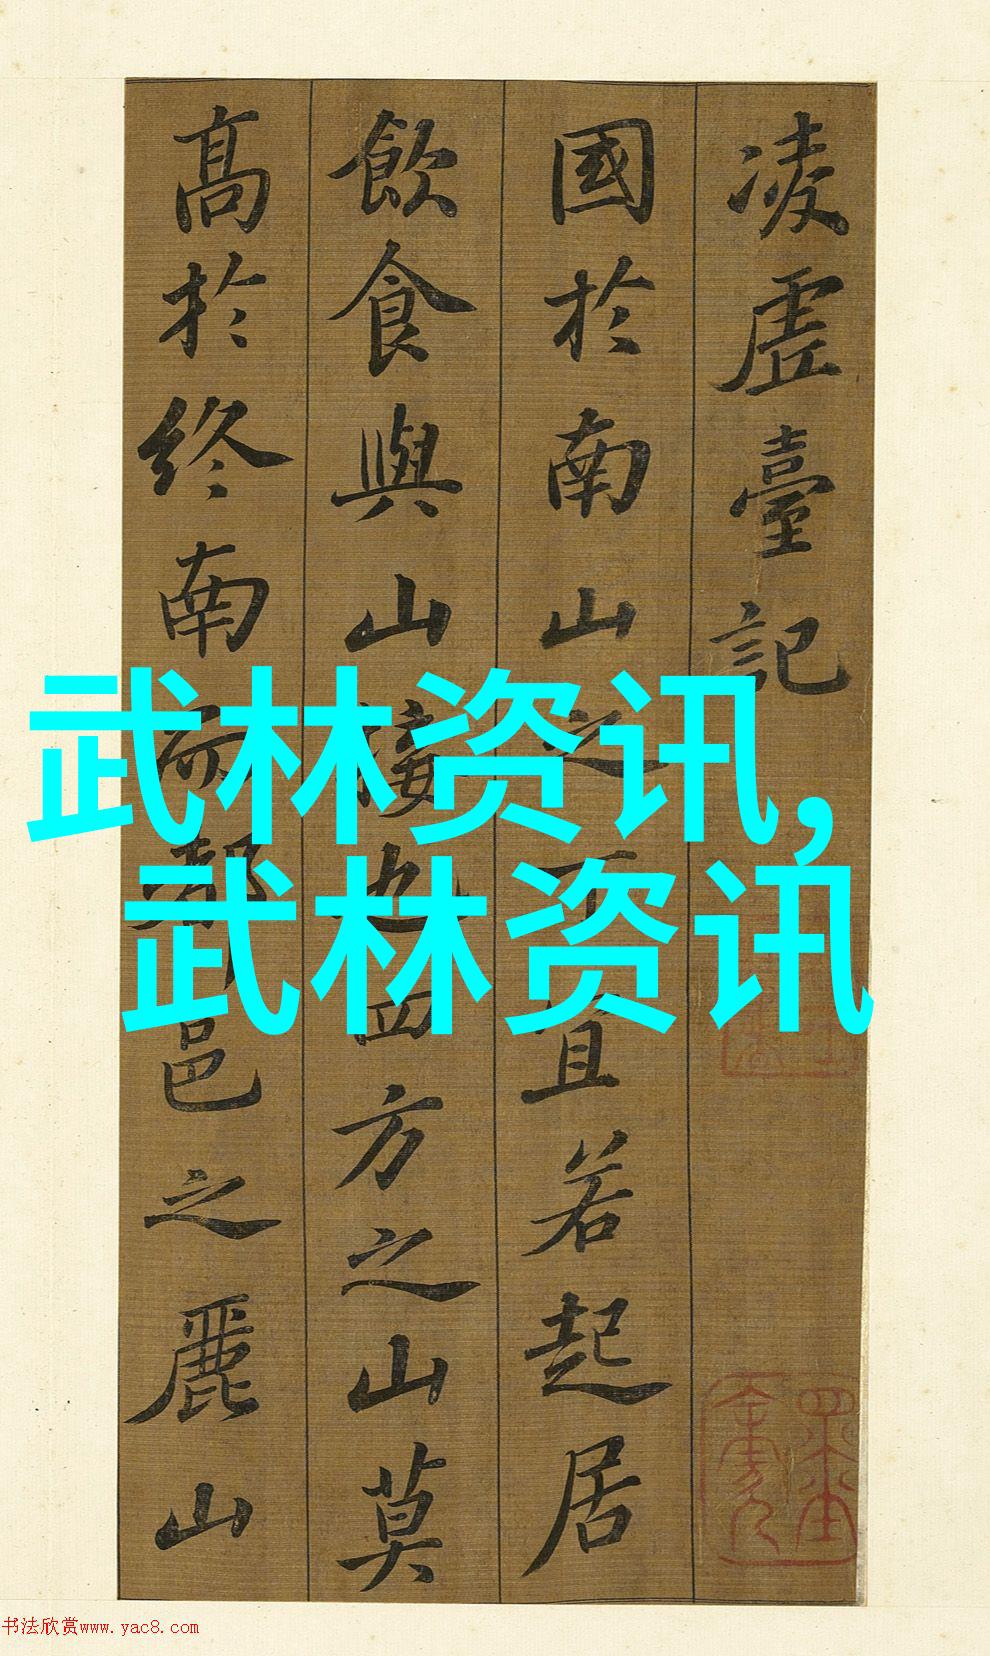 凌虛臺記
國於南山之下宜若起居
飲食與山接也四方之山莫
髙於終南而都邑之麗山
武林资讯,
武林资讯
书法欣赏www.yac8.com